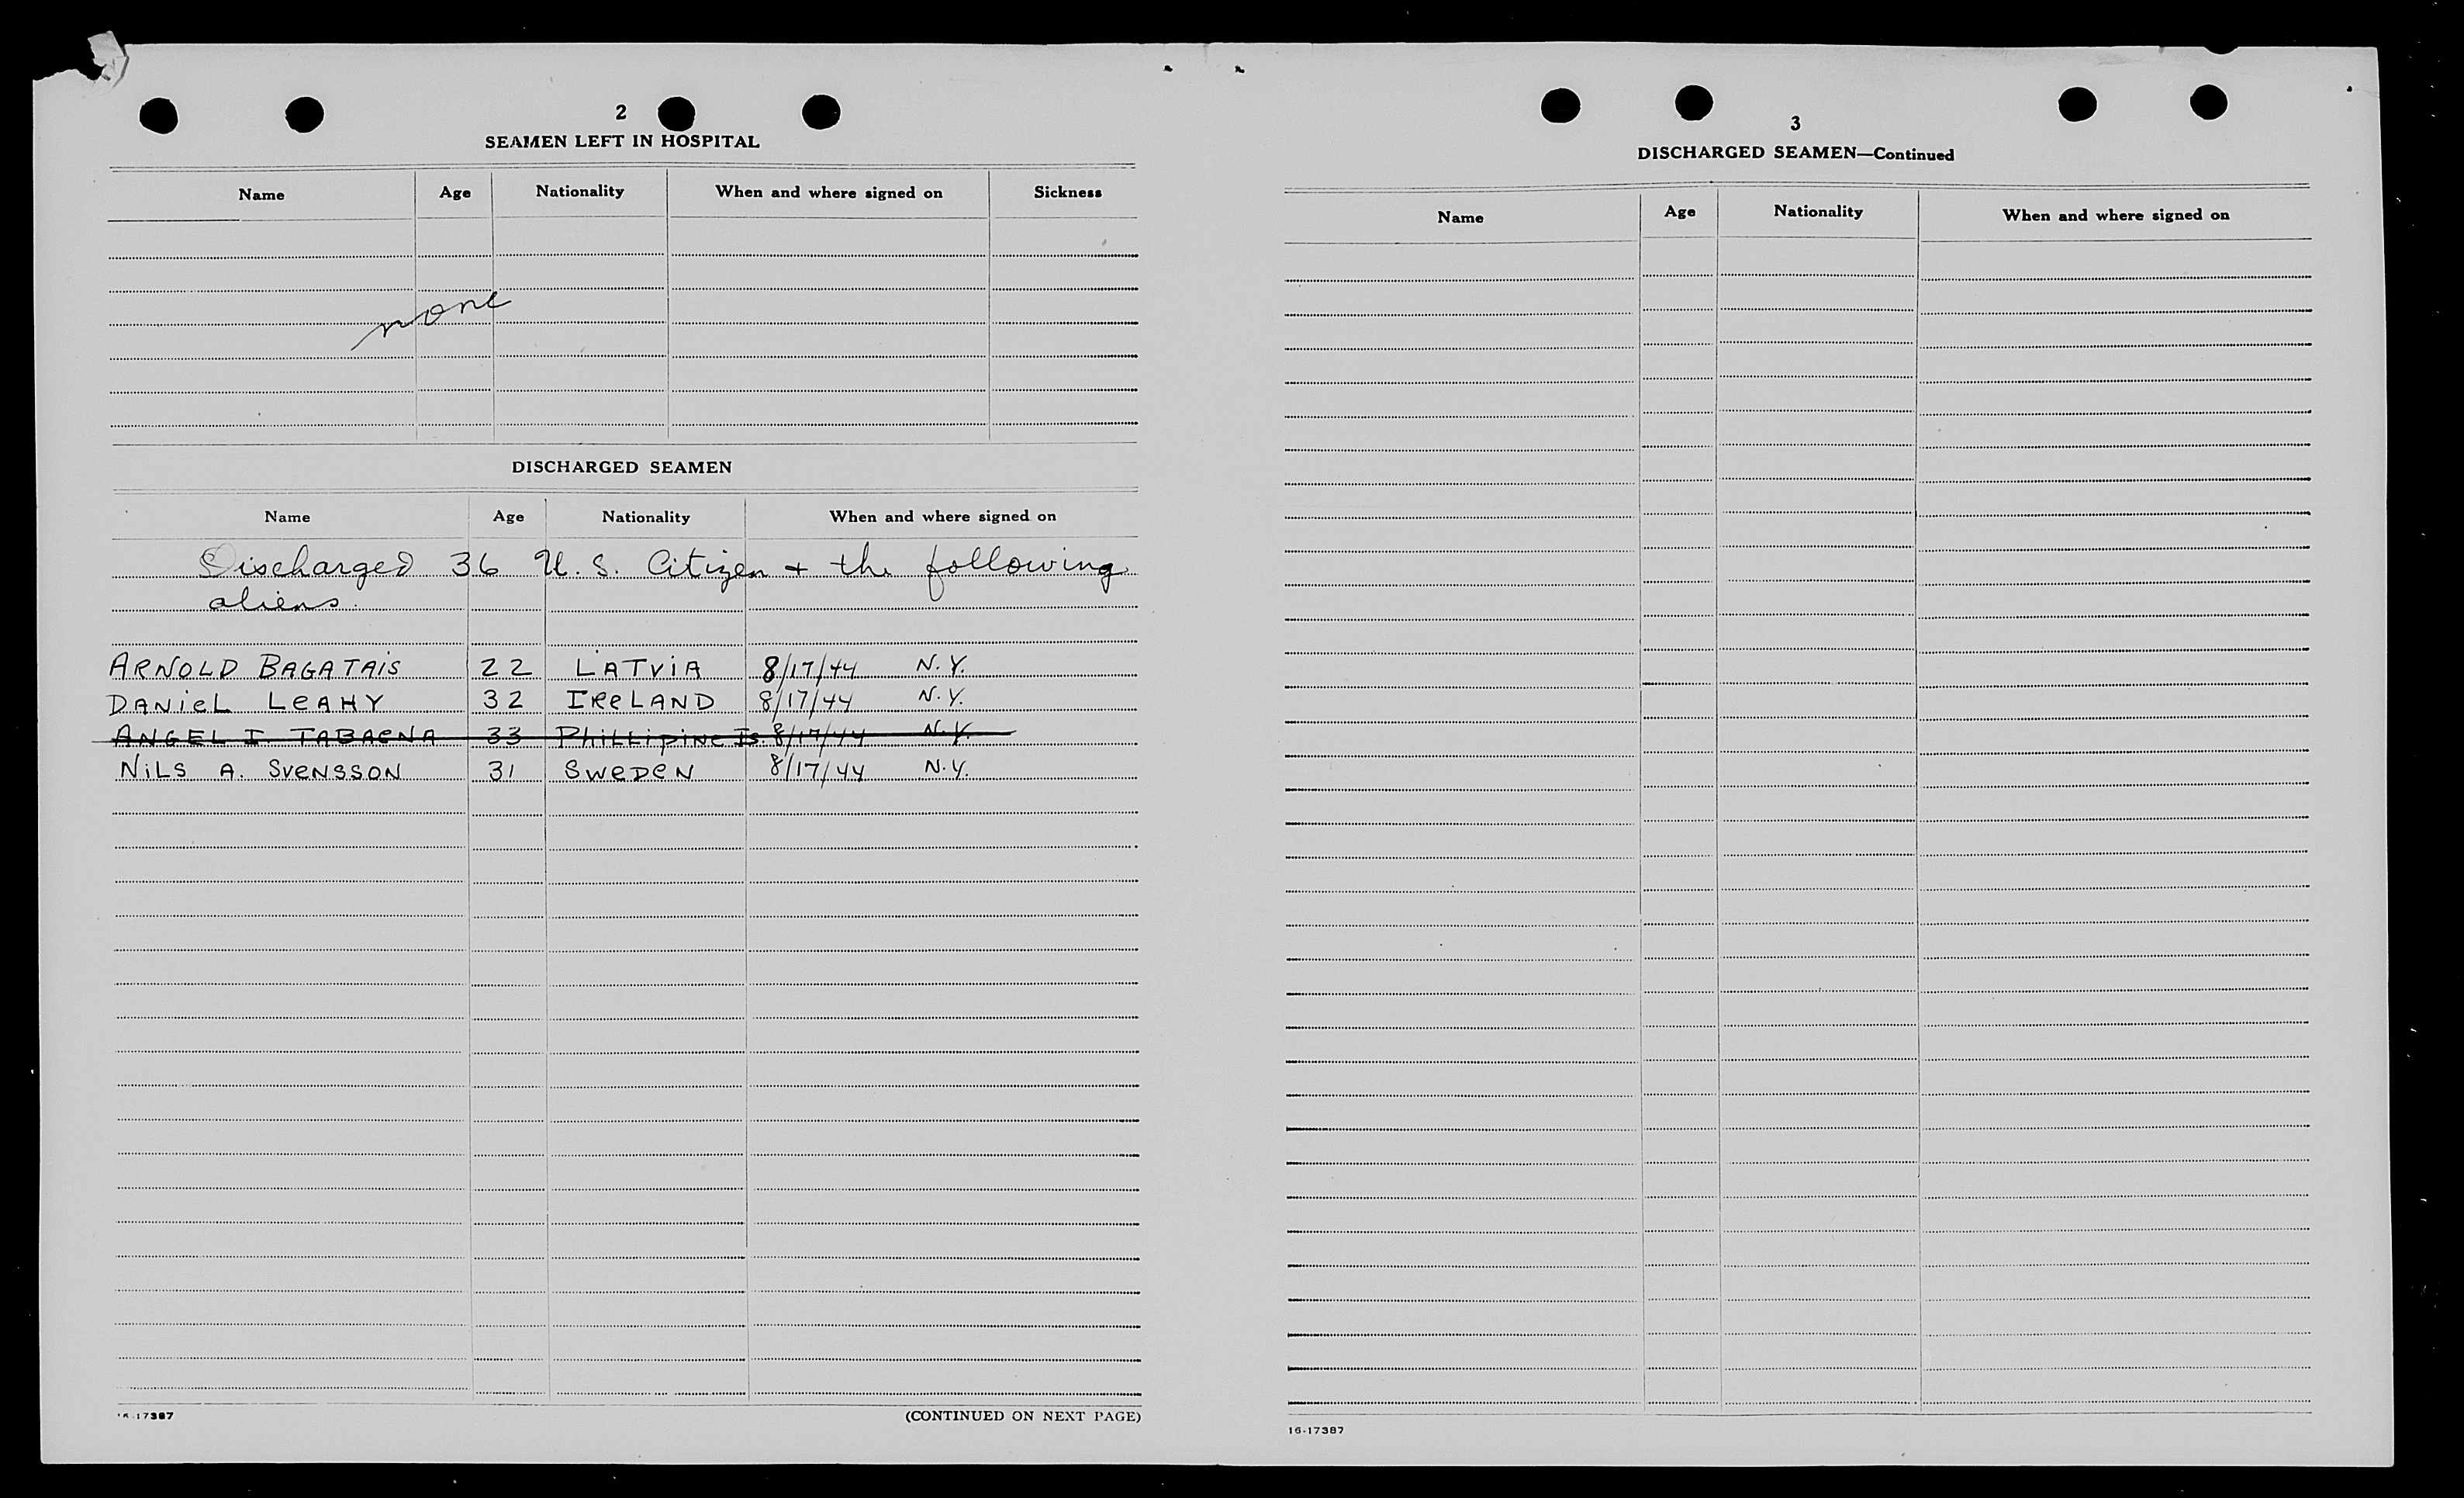 2
SEAMEN LEFT IN HOSPITAL
Name Age Nationality When and where signed on Sickness
none
DISCHARGED SEAMEN
Name Age Nationality When and where signed on
Discharged 36 U.S. Citizen + the following
aliens.
ARNOLD BAGATAIS 22 LATVIA 8/17/44 N.Y.
DANIEL LEAHY 32 IRELAND 8/17/44 N.Y.
ANGEL I TABAENA 33 PHILLIPINE IS. 8/17/44 N.Y.
NILS A. SVENSSON 31 SWEDEN 8/17/44 N.Y.
16-17387
(CONTINUED ON NEXT PAGE)
3
DISCHARGED SEAMEN—Continued
Name Age Nationality When and where signed on
16-17387